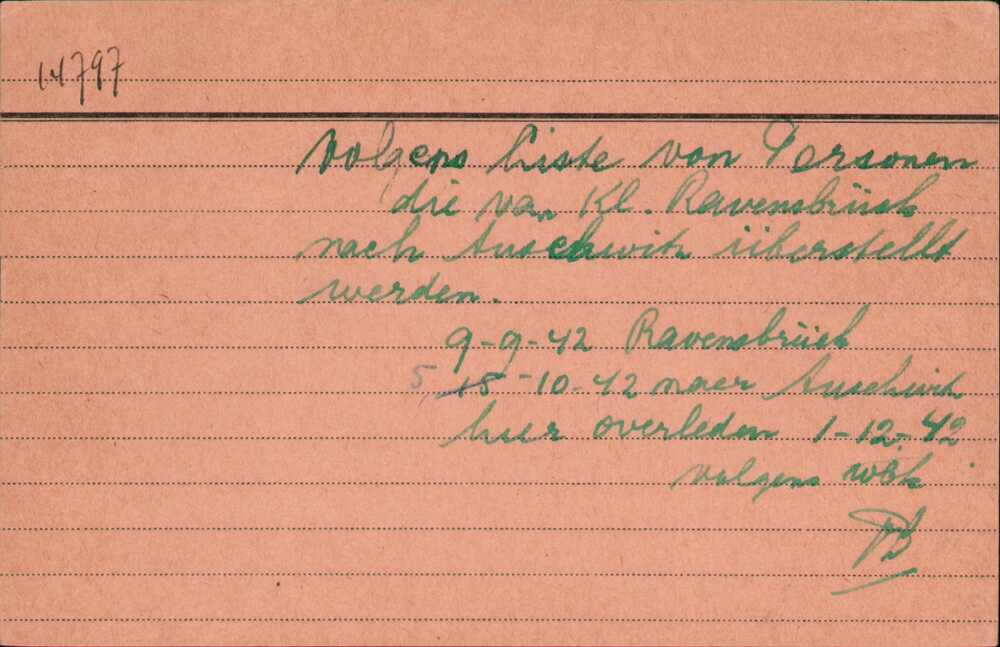 14797
Volgens Liste von Personen
die van Kl. Ravensbrück
nach Auschwitz überstellt
werden.
9-9-42 Ravensbrück
5 15-10-42 naar Auschwitz
hier overleden 1-12-42
volgens